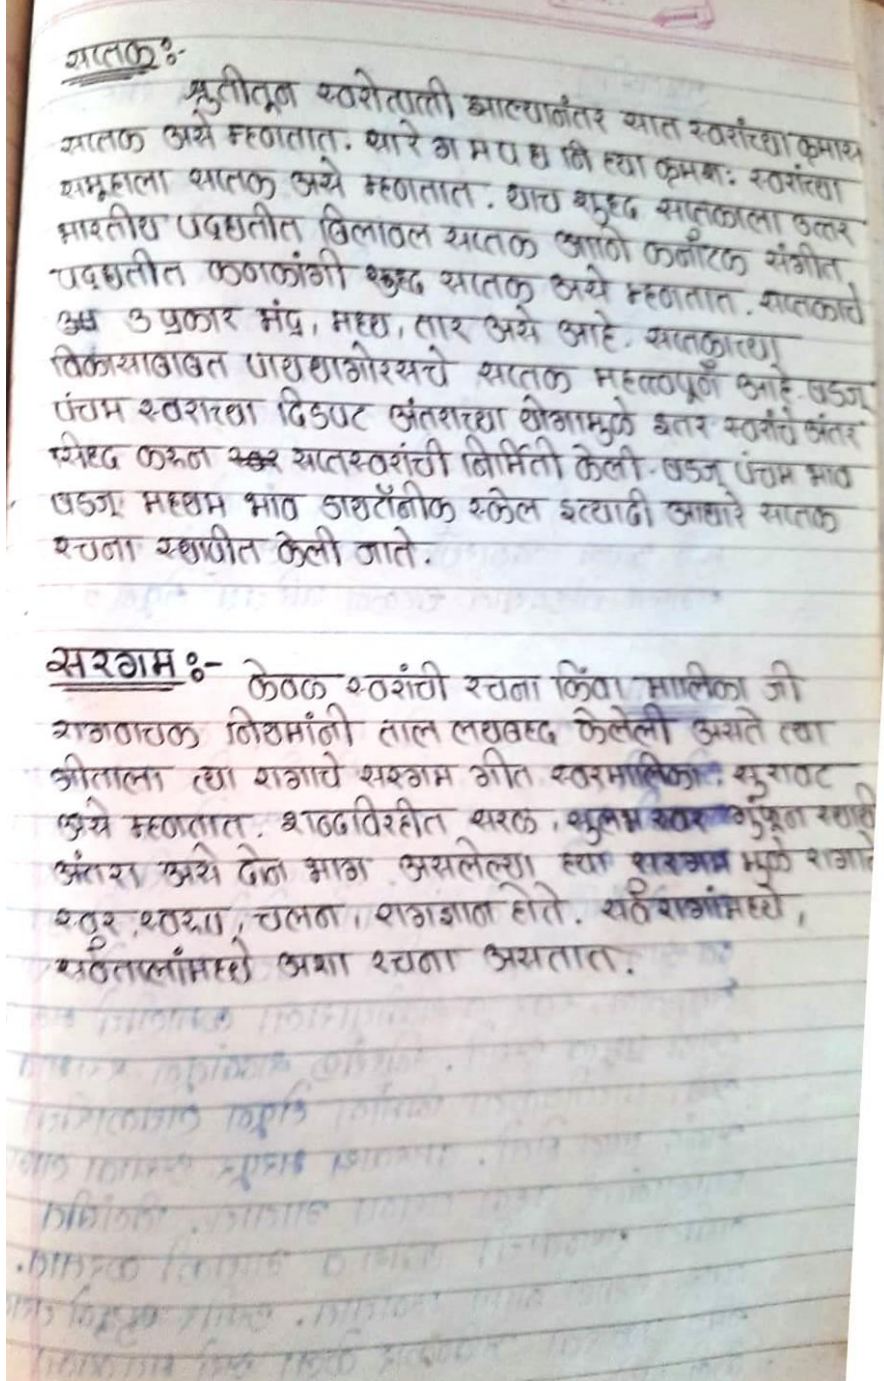 सप्तक :-
श्रुतीतून स्वरोत्पत्ती झाल्यानंतर सात स्वरांच्या क्रमास
सप्तक असे म्हणतात. सा रे ग म प ध नि ह्या क्रमशः स्वरांच्या
समूहाला सप्तक असे म्हणतात. याच शुद्ध सप्तकाला उत्तर
भारतीय पद्धतीत बिलावल सप्तक आणि कर्नाटक संगीत
पद्धतीत कनकांगी शुद्ध सप्तक असे म्हणतात. सप्तकाचे
3 प्रकार मंद्र, मध्य, तार असे आहे. सप्तकाच्या
विकासाबाबत पायथागोरसचे सप्तक महत्त्वपूर्ण आहे. षडज्
पंचम स्वराच्या दिडपट अंतराच्या योगामुळे इतर स्वरांचे अंतर
सिद्ध करून सप्तस्वरांची निर्मिती केली. षडज् पंचम भाव
षडज् मध्यम भाव डायटॉनीक स्केल इत्यादी आधारे सप्तक
रचना स्थापीत केली जाते.
सरगम :- केवळ स्वरांची रचना किंवा मालिका जी
रागवाचक नियमांनी ताल लयबद्ध केलेली असते त्या
गीताला त्या रागाचे सरगम गीत स्वरमालिका सुरावट
असे म्हणतात. शब्दविरहीत सरळ, सुलभ स्वर गुंफून स्थायी
अंतरा असे दोन भाग असलेल्या ह्या सरगम मुळे रागाचे
स्वर, स्वरूप, चलन, रागज्ञान होते. सर्व रागांमध्ये,
सर्वतालांमध्ये अशा रचना असतात.